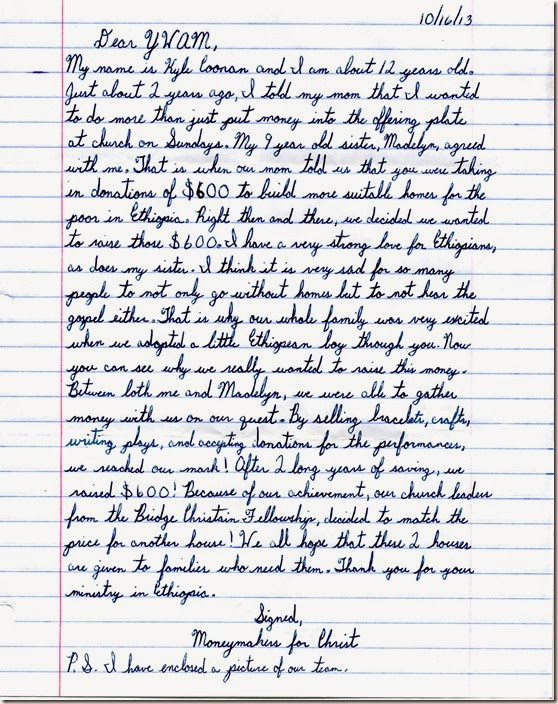 10/16/13
Dear YWAM,
My name is Kyle Coonan and I am about 12 years old.
Just about 2 years ago, I told my mom that I wanted
to do more than just put money into the offering plate
at church on Sundays. My 9 year old sister, Madelyn, agreed
with me. That is when our mom told us that you were taking
in donations of $600 to build more suitable homes for the
poor in Ethiopia. Right then and there, we decided we wanted
to raise those $600. I have a very strong love for Ethiopians,
as does my sister. I think it is very sad for so many
people to not only go without homes but to not hear the
gospel either. That is why our whole family was very excited
when we adopted a little Ethiopean boy through you. Now
you can see why we really wanted to raise this money.
Between both me and Madelyn, we were able to gather
money with us on our quest. By selling bracelets, crafts,
writing plays, and accepting donations for the performances,
we reached our mark! After 2 long years of saving, we
raised $600! Because of our achievement, our church leaders
from the Bridge Christain Fellowship, decided to match the
price for another house! We all hope that these 2 houses
are given to families who need them. Thank you for your
ministry in Ethiopia.
Signed,
Moneymakers for Christ
P.S. I have enclosed a picture of our team.